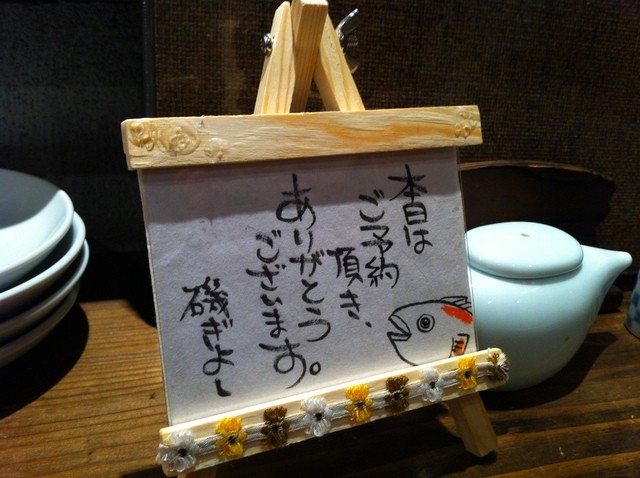 本日は
ご予約
頂き、
ありがとう
ございます。
磯ぎよー